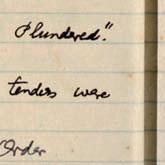 Plundered."
tenders were
Order